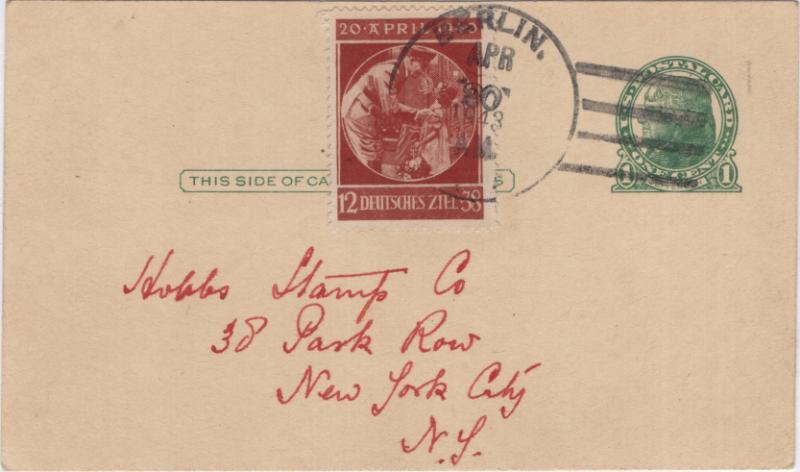 20·APRIL 19
BERLIN.
APR
20
1943
U.S. POSTAL CARD
ONE CENT
1 1
THIS SIDE OF CA S
12 DEUTSCHES ZIEL 38
Hobbs Stamp Co
38 Park Row
New York City
N.Y.